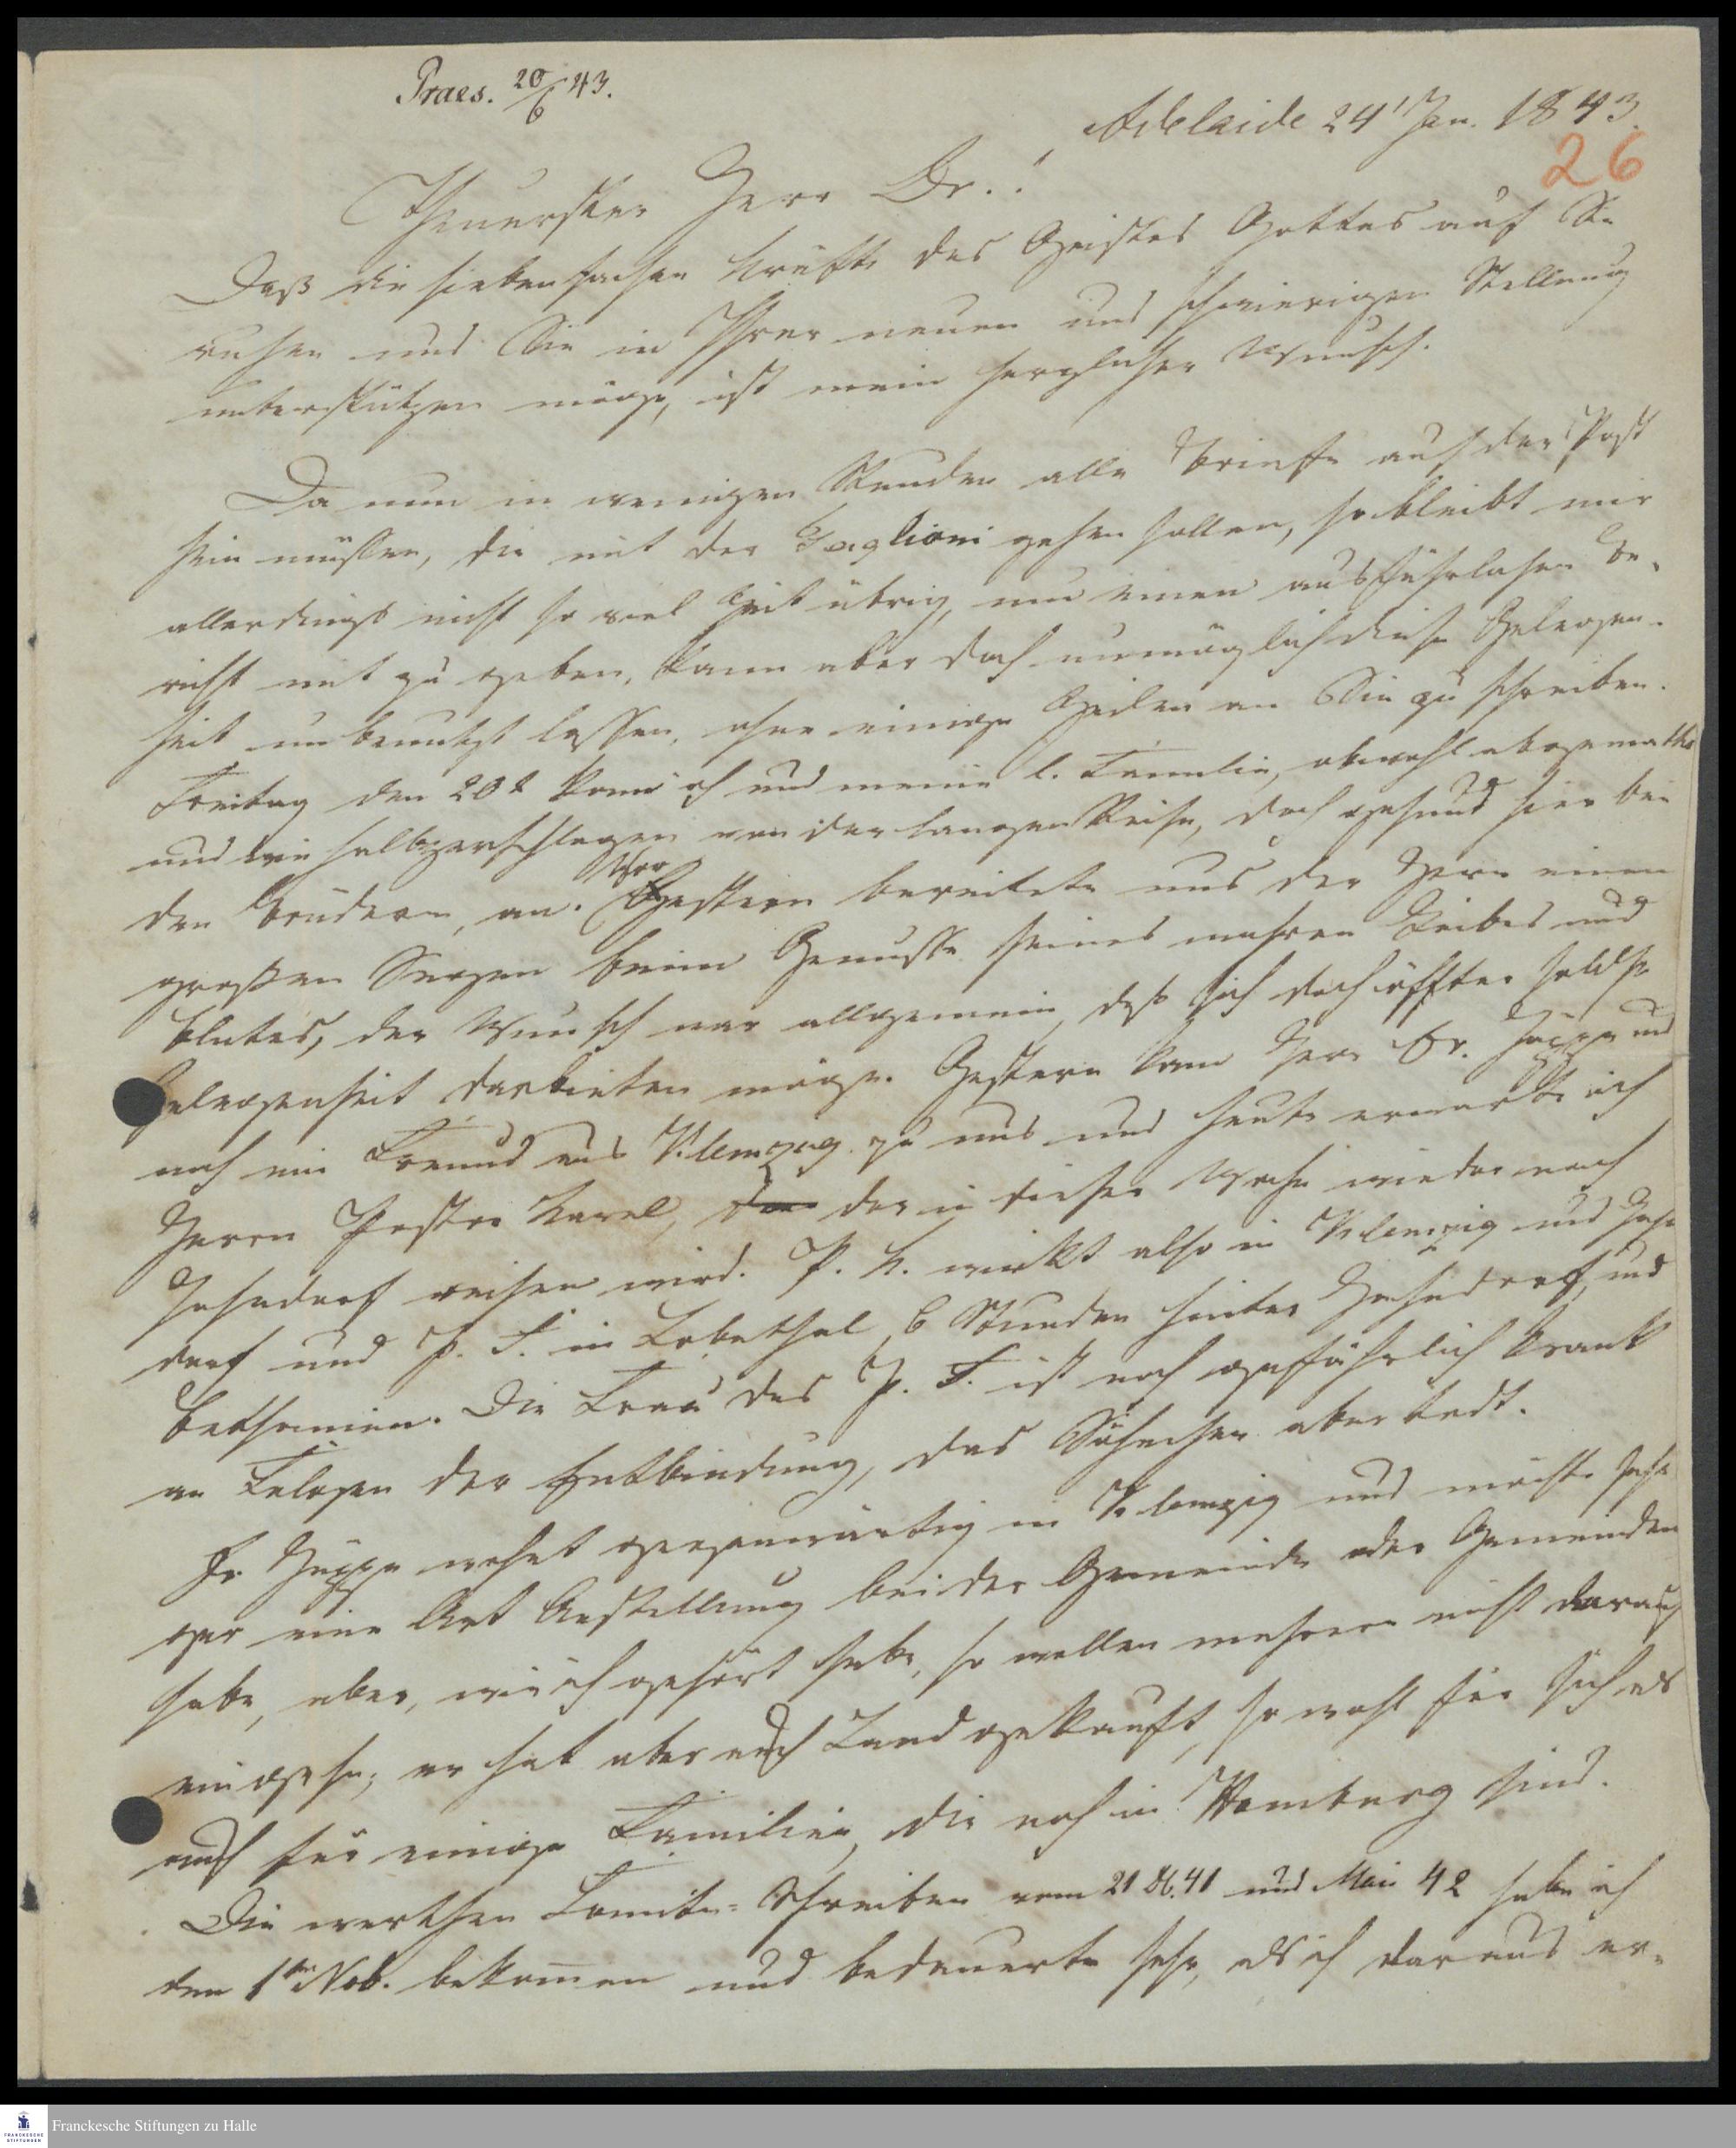 Praes. 20/6 43.
Adelaide 24' Jan. 1843.
26
Theuerster Herr Dr.!
Daß die siebenfachen Kräfte des Geistes Gottes auf Sie
ruhen und Sie in Ihrer neuen und schwierigen Stellung
unterstützen möge, ist mein herzlicher Wunsch.
Da nun in wenigen Stunden alle Briefe auf der Post
sein müssen, die mit der Taglioni gehen sollen, so bleibt mir
allerdings nicht so viel Zeit übrig, um einen ausführlichen Be-
richt mit zu geben, kann aber doch unmöglich diese Gelegen-
heit unbenutzt lassen, ohne einige Zeilen an Sie zu schreiben.
Freitag den 20t kam ich und meine l. Familie, obwohl abgemattet
und wie halbzerschlagen von der langen Reise, doch gesund hier bei
den Brüdern, an. Vorgestern bereitete uns der Herr einen
großen Segen beim Genusse seines wahren Leibes und
Blutes, der Wunsch war allgemein, daß sich doch öffter solche
Gelegenheit darbieten möge. Gestern kam Herr Dr. und
noch ein Freund aus Klemzig zu uns und heute erwarte ich
Herrn Pastor Kavel, der in dieser Woche wieder nach
Hahndorf reisen wird. P. K. wirkt also in Klemzig und Hahn
dorf und P. F. in Lobethal, 6 Stunden hinter Hahndorf, und
Bethanien. Die Frau des P. F. ist noch gefährlich krank
an Folgen der Entbindung, das Söhnchen aber todt.
wohnt gegenwärtig in Klemzig und möchte sehr
gern eine Art Anstellung bei der Gemeinde oder Gemeinden
habe, aber, wie ich gehört habe, so wollen mehrere nicht darauf
eingehn; er hat aber auch Land gekauft, so wohl für sich als
auch für einige Familien, die noch in Hamburg sind.
Die werthen Comite-Schreiben vom 21 41 und Mai 42 habe ich
den 1ten Nob. bekommen und bedauerte sehr, als ich daraus er-
Franckesche Stiftungen zu Halle